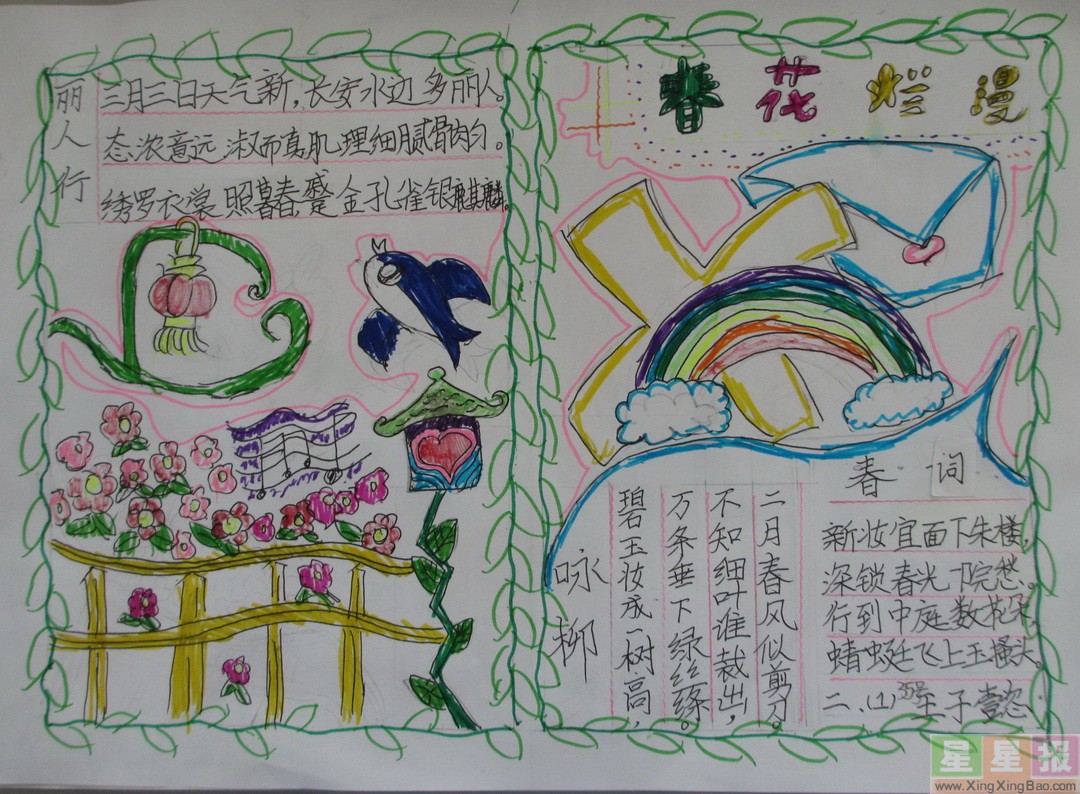 丽人行
三月三日天气新，长安水边多丽人。
态浓意远淑而真肌理细腻骨肉匀。
绣罗衣裳照暮春蹙金孔雀银麒麟。
春花烂漫
咏柳
碧玉妆成一树高，
万条垂下绿丝绦。
不知细叶谁裁出，
二月春风似剪刀。
春词
新妆宜面下朱楼，
深锁春光一院愁。
行到中庭数花朵，
蜻蜓飞上玉搔头。
二、(1) 35号 王子
星星报
www.XingXingBao.com